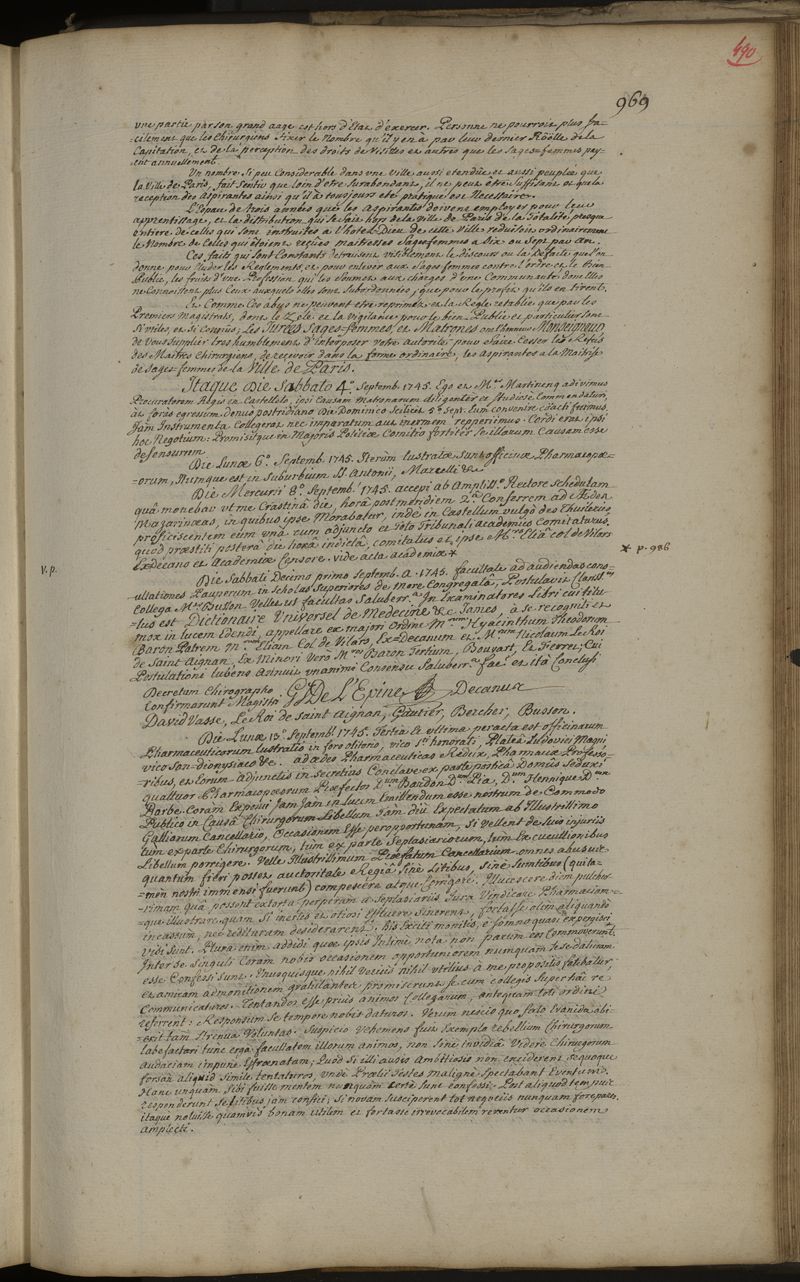 490
969
une partie par son grand aage est hors d'Etat d'exercer. Personne ne pourroit plus fa=
=cilement que les Chirurgiens fixer le Nombre qu'il y en a par leur dernier Röolle de la
Capitation, et de la perception des droits de Visittes et autres que les Sages=femmes pay=
=ent annuellement.
Un nombre si peu Considerable dans une Ville aussi etendüe et aussi peuplée que
la Ville de Paris, fait Sentir que loin d'etre Surabondant, il ne peut être Suffisant et que la
reception des Aspirantes ainsi qu'il a toujours eté pratiqué est Necessaire.
L'Espace de trois années que les Aspirantes doivent employer pour leur
apprentissage, et la distribution qui se fait hors de la Ville de Paris de la Totalité presque
entiere de celles qui sont instruites a l'hotel=Dieu de cette Ville reduisoit ordinairement
le Nombre de Celles qui étoient reçües maitresses Sagesfemmes a Dix ou Sept par an.
Ces faits qui sont Constants detruisent visiblement le discours ou la Defaite que l'on
donne pour Eluder les Reglements, et pour enlever aux Sages femmes contre l'ordre et le bien
Public, les fruits d'une Profession qui les Soumet aux charges d'une Communauté dont Elles
ne Connoissent plus Ceux auxquels elles sont Subordonnées, que pour le profit qu'ils en tirent.
Et Comme Ces abus ne peuvent etre reprimés et la Regle retablie que par les
Premiers Magistrats, dont le Zele et la Vigilance pour le bien Public et particulier sont
Si utiles, et si Connus; Les Jurées Sages=femmes, et Matrones ont l'honneur Monseigneur
de Vous Supplier tres humblement d'interposer Votre Autorité pour faire Cesser les Refus
des Maitres Chirurgiens, de recevoir dans la forme ordinaire, les Aspirantes a la Maitrise
de Sages-femmes de la Ville de Paris.
Itaque Die Sabbato 4a. Septemb. 1745. Ego et Mr. Martinenq adivimus
Procuratorem Regis in Castelleto, ipsi Causam Matronarum diligenter et Studiose Commendaturi,
at foras egressum denuo postridiano Die Dominico Scilicet 5a Sept. Eum convenire coacti fuimus.
Jam Instrumenta Collegerat nec imparatum aut inermem repperimus. Cordi erat ipsi
hoc Negotium: Promisitque in Majoris Politiæ Comitio fortiter se illarum Causam esse
defensurum.
Die Lunæ 6a. Septemb. 1745. Iterum lustratæ Sunt officinæ Pharmacopæ=
=orum, Itumque est in Suburbium Sti. Antonii, Marcelli &c
Die Mercurii 8a. Septemb. 1745. accepi ab Ampliss. Rectore Schedulam
quâ monebar ut me Crastinâ die, horâ post meridiem 2a. Conferrem ad Ædes
Mazarinæas, in quibus ipse Morabatur, inde in Castellum vulgò des Thuileries
proficiscentem eum unà cum adjuncto et toto Tribunali Academico Comitaturus.
quod præstiti posterâ die horâ indictâ, comitatus et ipse Mro. Eliâ Col de Vilars
Exdecano et Academiæ Censore. vide acta academiæ *
* p. 986
v. p.
Die Sabbati Decimo primo Septemb. A. 1745. facultate ad audiendas cons=
=ultationes Pauperum in Scholas Superiores de More Congregatâ, Postulavit Clariss.
Collega Mr. Busson Vellet ut facultas Saluberr.a In Examinatores Libri cui titu=
=lus est Dictionaire Universel de Medecine &c James, à se recogniti et
mox in lucem Edendi, appellare ex majori Ordine M. Hyacinthum Theodorum
Baron Patrem M. Eliam Col de Vilars, Ex=Decanum et M. Nicolaum Le Roi
de Saint Aignan, Ex Minori Vero Mros Baron Tertium, Bouvart, Et Verret; Cui
Postulationi lubens Annuit unanimi Consensu Saluberr. Fac. et Ità Conclusi
Decretum Chirographo G. J. De L'Epine Decanus
Confirmarunt Magistri
David Vasse, Le Roi de Saint Aignan, Gautier, Bercher, Busson.
Die Lunæ 13a. Septemb. 1745. Tertia et ultima peracta est officinarum
Pharmaceuticarum lustratio in foro olitorio, vico Sti. honorati, Plateâ Ludovici Magni
vico San=dionysiaco &c. ad ædes Pharmaceuticas Redux, Pharmaciæ Professo=
=ribus, et Eorum adjunctis in Secretius Conclave ex parte posticâ Domûs Seductis
quatuor Pharmacopæorum Præfectos Dum. Baudon Dum. Pia, Dum. Hennique Dum
Barbe. Coram Exposui Jam Jam in Lucem Emittendum esse nostrum de Commodo
Publico in Causâ Chirurgorum Libellum Jam diù Expectatum ab Illustrissimo
Galliarum Cancellario, Occasionem Esse peropportunam, Si vellent de Suis injuriis
tum ex parte Chirurgorum, tum ex parte Septasiariorum, tum Ex Cucullionibus
Libellum porrigere. Velle Illustrissimum Præfatum Cancellarium omnes abusus
quantum fieri posset auctoritate Regiâ Sine Litibus, Sine Sumtibus (qui ta=
=men nostri immensi fuerunt) compescere atque Corrigere. Illucescere diem pulcher=
=rimam quâ possent extorta perperam a Seplasiariis Jura Vindicare Pharmaciam=
=que illustrare, quam Si inertes et otiosi Effluere Sinerent, fortasse olim aliquando
in cassum, nec redituram desiderarent. his dictis monitis, è somno quasi expergisci
visi Sunt. Plura enim addidi quæ ipsis Intime nota non parum eos Commoverunt.
Inter se Singuli Coram nobis occasionem opportuniorem numquam Sese daturam
esse Confessi Sunt. Unusquisque nihil Verius nihil utilius a me propositis fatebatur,
et amicam admonitionem gratulanter promiserunt se cum collegis Super hac re
Communicaturos. Tentandos esse prius animos Collegarum, antequam toti ordini
referrent: Responsum se tempore nobis daturos. Verum nescio quo fato Evanida abi=
=erit tam Strenua Voluntas. Suspicio Vehemens fuit Exemplo rebellium Chirurgorum
labefactari tunc ergà facultatem illorum animos, non Sine invidiâ Videre Chirurgorum
Audaciam impune Effrænatam; Quod Si illi ausis Ambitiosis non exciderent se quoque
forsan aliquid Simile tentaturos, unde Prælii Testes maligne Spectabant Eventum.
Hanc unquam Sibi fuisse mentem nunquam certe Sunt confessi. Post aliquod tempus
responderunt se litibus jam confici, Si novam Susciperent tot negotiis nunquam fore pares,
itaque noluisse quamvis bonam utilem et fortasse irrevocabilem verentur occasionem
amplecti.